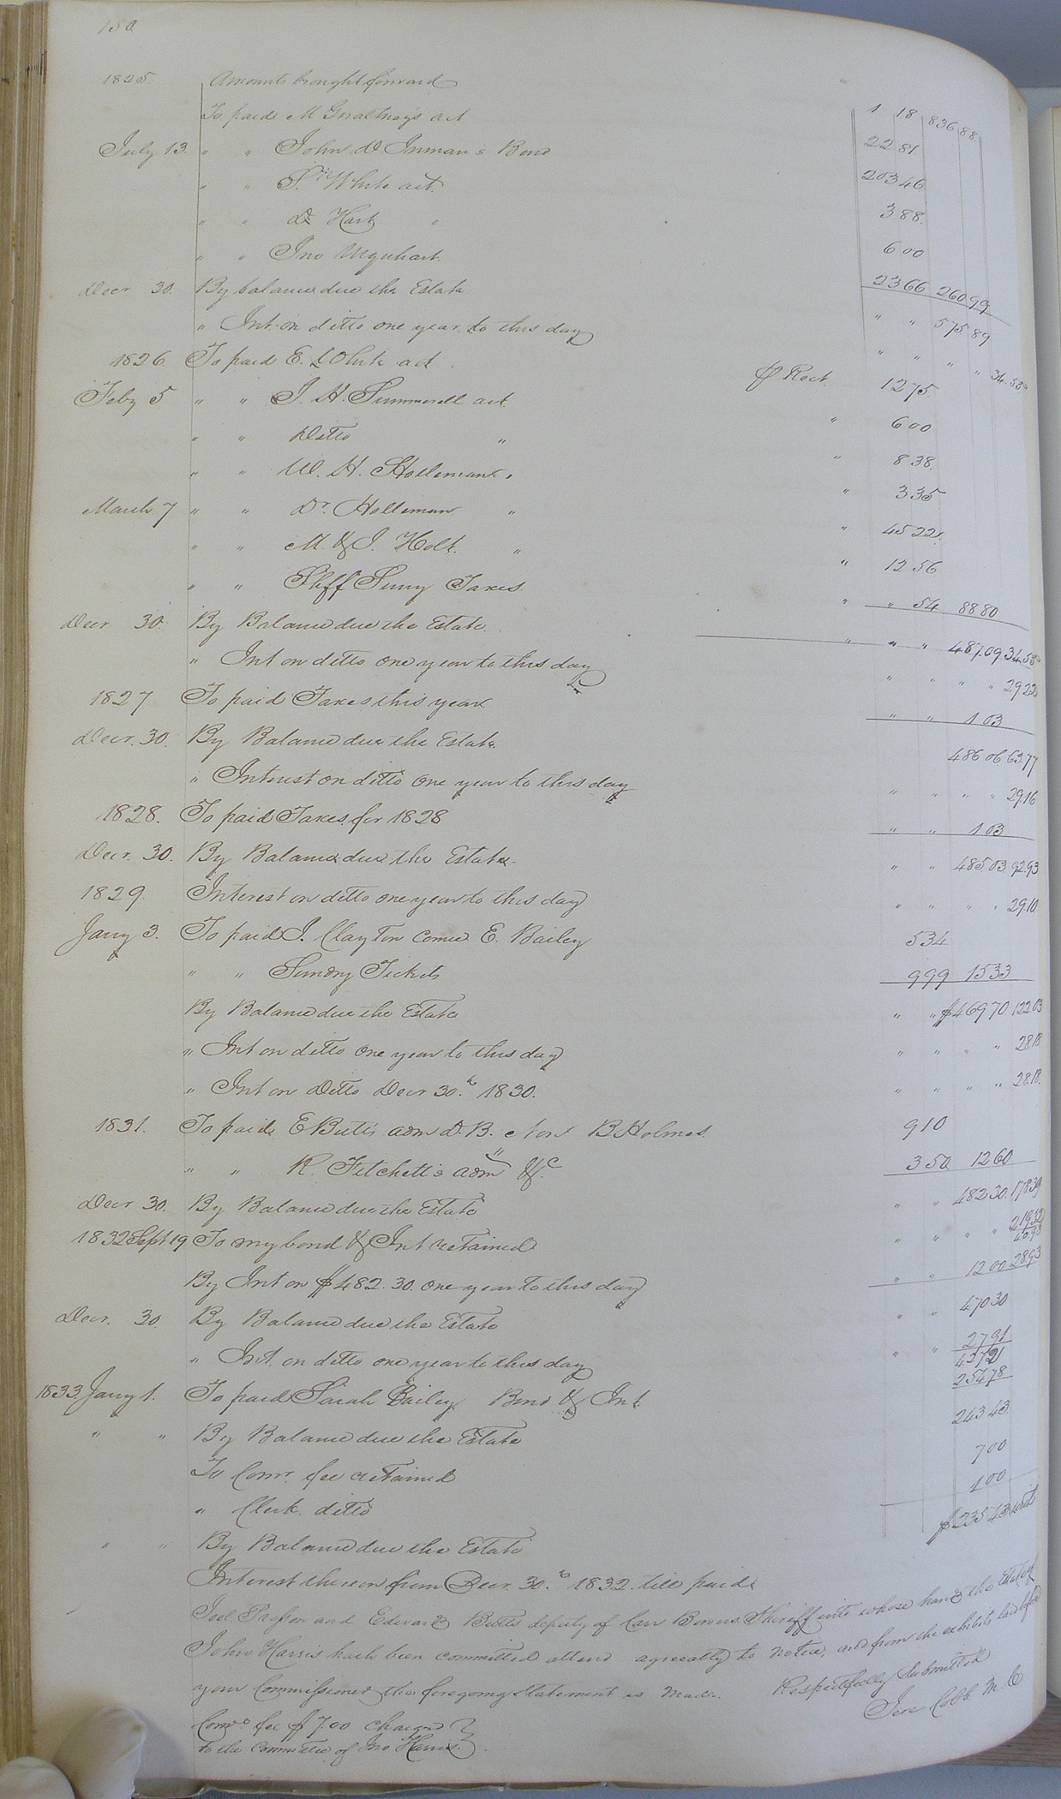 180
1825. Amounts brought forward 1 18 836 88
To paid M Gwaltney's act 22 81
July 13. " " John D Inman's Bond 203 46
" " White act. 3 88
" " Dr Hart " 6 00
" " Jno Urquhart. 23 66 260 99
Decr 30. By balance due the Estate " " 575 89
" Int. on ditto one year to this day " " " " 34.55
1826. To paid E. White act. ⅌ Rect 12 75
Feby 5 " " J. H. Summerell act. " 6 00
" " Ditto " " 8 38
" " W. H. Holleman " " 3 35
March 7 " " Dr. Holleman " " 45 22
" " M. & J. Holt. " " 12 56
" " Shff Sunry Taxes " " 54 88 80
Decr 30. By Balance due the Estate. " " " 487.09 34.55
" Int on ditto one year to this day " " " " 29 22
1827 To paid Taxes this year " " 1 03
Decr. 30. By Balance due the Estate. 486 06 63 77
" Interest on ditto one year to this day " " " " 29 16
1828. To paid Taxes for 1828 " " 1 03
Decr. 30. By Balance due the Estate. " " 485 03 92 93
1829. Interest on ditto one year to this day " " " " 29 10
Jany 3. To paid J. Clayton Comr E. Bailey 5 34
" " Sundry Tickets 9 99 15 33
By Balance due the Estate " " $469 70 122 03
" Int on ditto one year to this day " " " " 28 18
" Int on Ditto Decr 30th 1830. " " " " 28 18
1831. To paid E Butts adm D. B. Non B Holmes 9 10
" " R. Fitchett's adm &c 3 50 12 60
Decr 30. By Balance due the Estate " " 482 30 178 39
1832 Sept 19 To my bond & Int retained " " " "
By Int on $482.30. one year to this day " " 12 00 28 93
Decr. 30. By Balance due the Estate " " 470 30
" Int. on ditto one year to this day " " 27 91
1833 Jany 1. To paid Sarah Bailey Bond & Int 254 78
" " By Balance due the Estate 243 43
To Comr. fee retained 7 00
" Clerk ditto 1 00
" " By Balance due the Estate $235 43 with
Interest thereon from Decr. 30th 1832. till paid.
Joel and Edward Butts deputy of Carr Bowers Sheriff into whose hands the Estate of
John Harris hath been committed attend agreeably to notice, and from the exhibits laid before
your Commissioner the foregoing statement is made. Respectfully Submitted
Comrs fee $7.00 charged Jere Cobb M C
to the committee of Jno Harris.